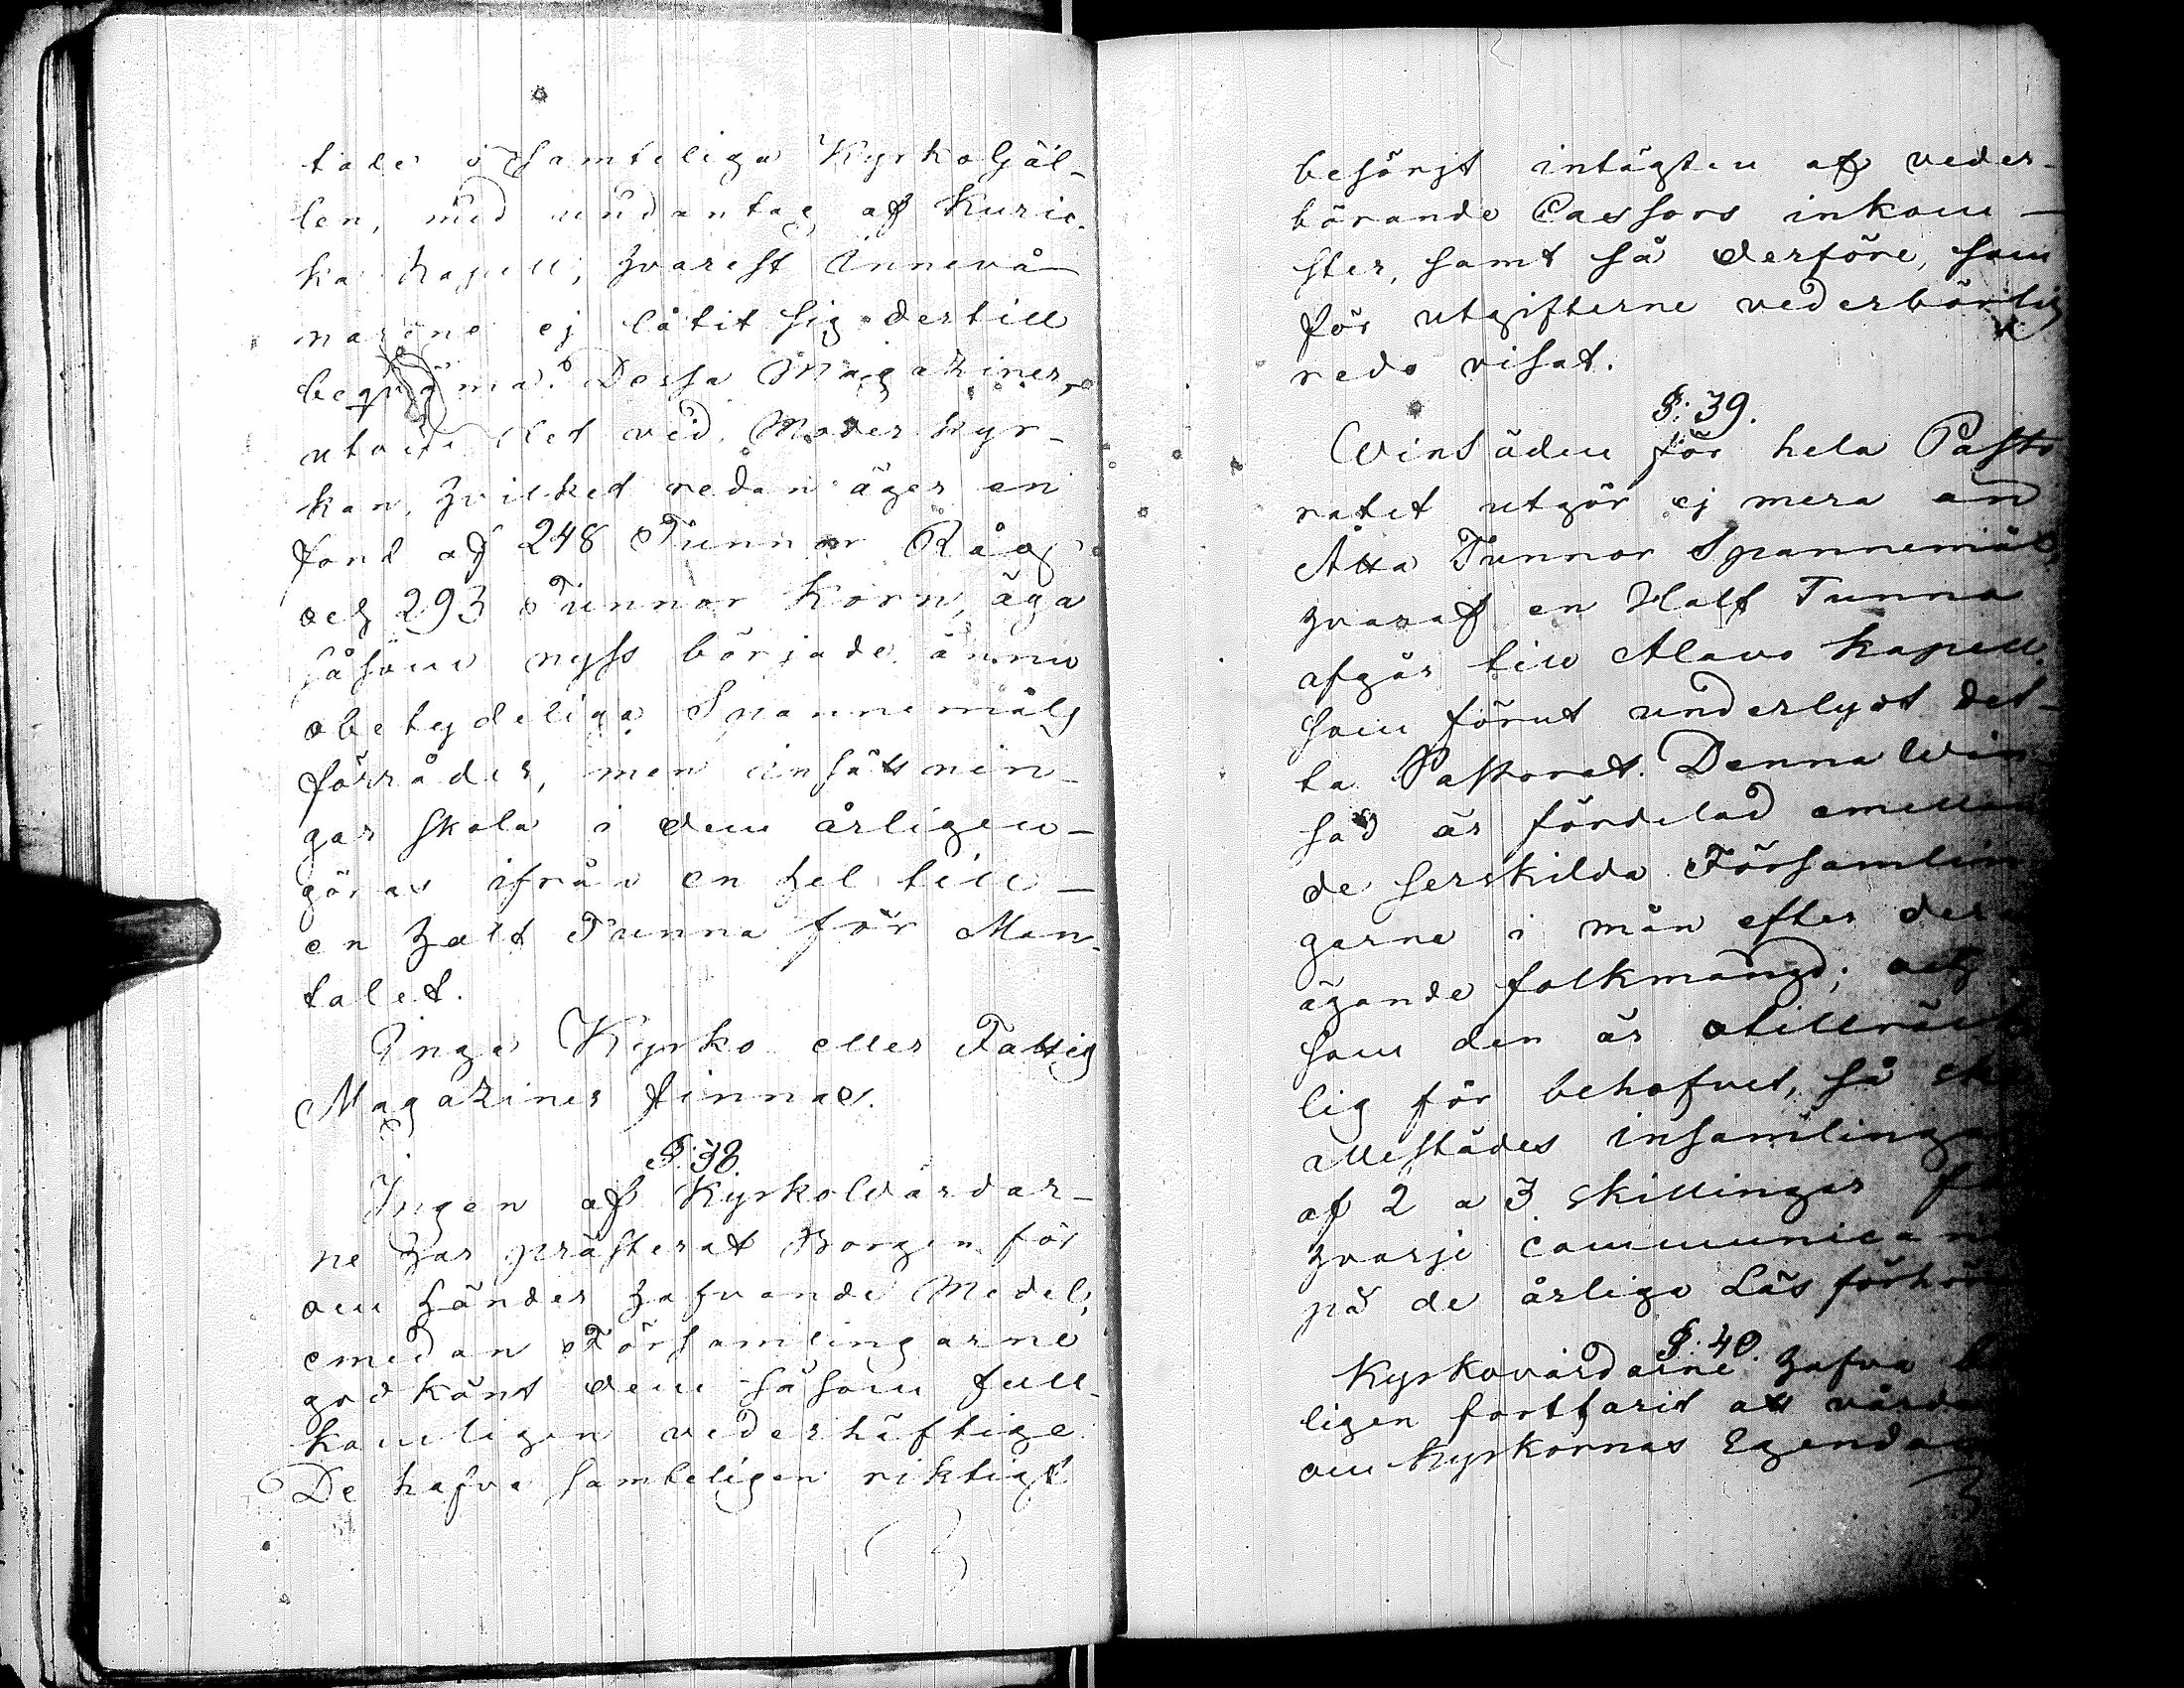 tade i Samteliga Kyrko Gäl-
len, med undantag af Kuric-
ka kapell, hvarest Innevå-
narene ej låtit sig dertill
beqväma. Dessa Magaziner,
utom det vid Moder kyr-
kan, hvilket redan äger en
fond af 248 Tunnor Råg
och 293 Tunnor Korn, äga
såsom nyss började ännu
obetydeliga Spannemåls
förråder, men insättnin-
gar skola i dem årligen
göras ifrån en hel till
en half Tunna för Man-
talet.
Inga Kyrko eller Fattig
Magaziner finnas.
§. 38.
Ingen af Kyrkovärdar-
ne har præsterat Borgen för
om händer hafvande Medel,
emedan Församlingarne
godkänt dem såsom full-
komligen vederhäftige.
De hafva samteligen riktigt
besörjt intägten af veder-
börande Cassors inkom-
ster, samt så derföre, som
för utgifterne vederbörlig
redo visat.
§. 39.
Winsäden för hela Pasto
ratet utgör ej mera än
Åtta Tunnor Spannemål,
hvaraf en Half Tunna
afgår till Alavo kapell
som förut underlydt det-
ta Pastorat. Denna Win
säd är fördelad emellan
de serskilda Församlin
garne i mån efter deras
ägande folkmängd; och
som den är otillräck
lig för behofvet, så ske
allestädes insamlingar
af 2 a 3 skillingar för
hvarje Communicant
på de årliga Läs förhör
§. 40.
Kyrkovärdarne hafva
ligen fortfarit att vårda
om Kyrkornas Egendom